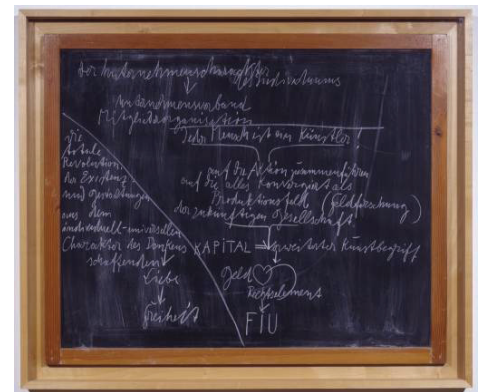 Der Unternehmenscharakter
des Individuums
Unternehmensverband
Mitgliederorganisation
Jeder Mensch ist ein Künstler!
Die
totale
Revolution
der Existenz
und Gestaltungen
aus dem
individuell-universellen
Charakter des Denkens
schaffenden
Liebe
Freiheit
auf die Aktion zusammenführen
auf die alles konvergiert als
Produktionsfeld (Feldforschung)
der zukünftigen Gesellschaft
KAPITAL = erweiterter Kunstbegriff
Geld
Rechtselement
FIU